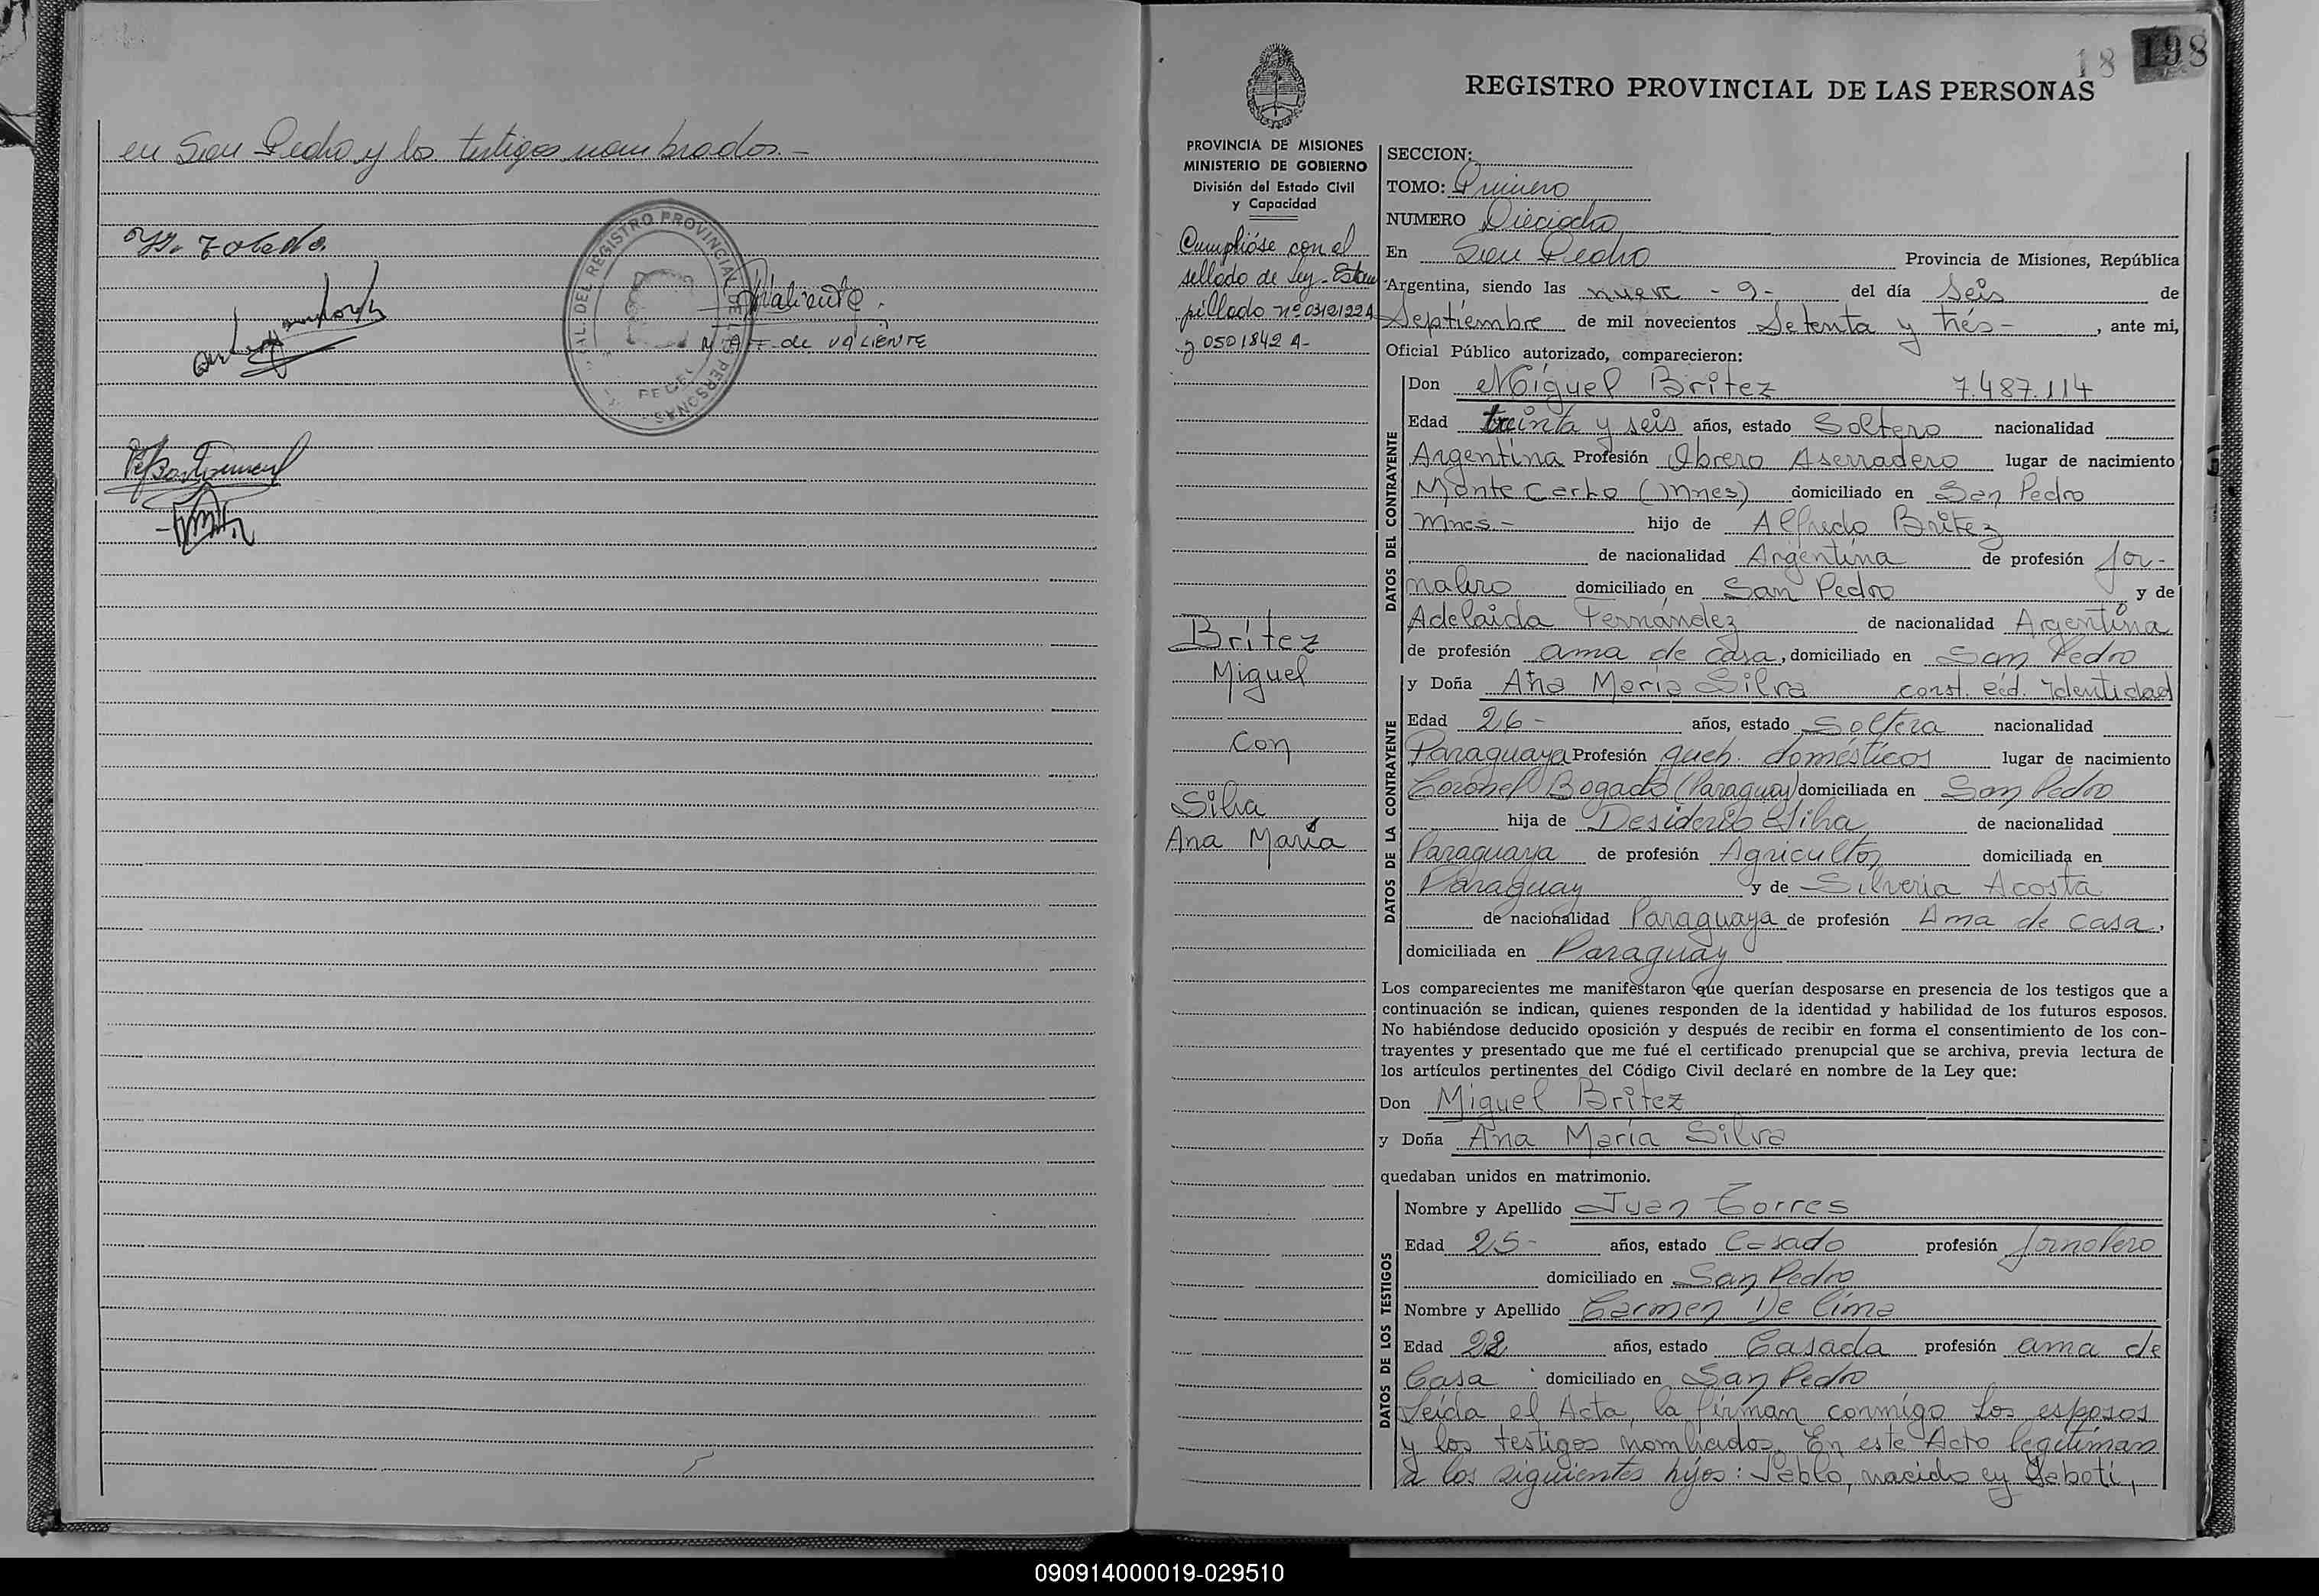 en San Pedro y los testigos nombrados.-
Valiente.
de VALIENTE
18 198
REGISTRO PROVINCIAL DE LAS PERSONAS
PROVINCIA DE MISIONES
MINISTERIO DE GOBIERNO
División del Estado Civil
y Capacidad
Cumplióse con el
sellado de Ley-Estam
pillado nº 0312122A
y 0501842 A-
Britez
Miguel
con
Silva
Ana María
SECCION:
TOMO: Primero
NUMERO Dieciocho
En San Pedro Provincia de Misiones, República
Argentina, siendo las nueve - 9 - del día Seis de
Septiembre de mil novecientos Setenta y trés-, ante mi,
Oficial Público autorizado, comparecieron:
DATOS DEL CONTRAYENTE
Don Miguel Britez 7.487.114
Edad treinta y seis años, estado Soltero nacionalidad
Argentina Profesión Obrero Aserradero lugar de nacimiento
Monte Carlo (Mnes) domiciliado en San Pedro
Mnes- hijo de Alfredo Britez
de nacionalidad Argentina de profesión Jor-
nalero domiciliado en San Pedro y de
Adelaida Fernández de nacionalidad Argentina
de profesión ama de casa, domiciliado en San Pedro
DATOS DE LA CONTRAYENTE
y Doña Ana María Silva const. Ced. Identidad
Edad 26- años, estado Soltera nacionalidad
Paraguaya Profesión queh. domésticos lugar de nacimiento
Coronel Bogado (Paraguay) domiciliada en San Pedro
hija de Desiderio Silva de nacionalidad
Paraguaya de profesión Agricultor domiciliada en
Paraguay y de Silveria Acosta
de nacionalidad Paraguaya de profesión Ama de casa,
domiciliada en Paraguay
Los comparecientes me manifestaron que querían desposarse en presencia de los testigos que a
continuación se indican, quienes responden de la identidad y habilidad de los futuros esposos.
No habiéndose deducido oposición y después de recibir en forma el consentimiento de los con-
trayentes y presentado que me fué el certificado prenupcial que se archiva, previa lectura de
los artículos pertinentes del Código Civil declaré en nombre de la Ley que:
Don Miguel Britez
y Doña Ana María Silva
quedaban unidos en matrimonio.
DATOS DE LOS TESTIGOS
Nombre y Apellido Juan Torres
Edad 25- años, estado Casado profesión Jornalero
domiciliado en San Pedro
Nombre y Apellido Carmen De Lima
Edad 22 años, estado Casada profesión ama de
Casa domiciliado en San Pedro
Leída el Acta, la firman conmigo los esposos
y los testigos nombrados. En este Acto legitiman
a los siguientes hijos: Pablo, nacido en
090914000019-029510